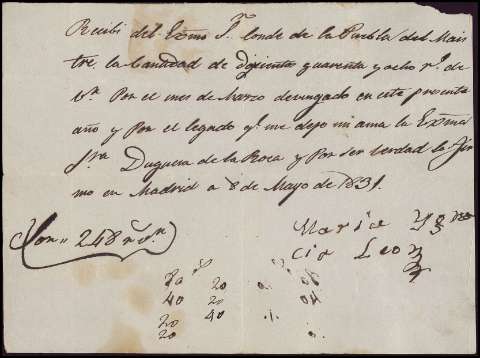 Recibi del Exmo Sr. Conde de la Puebla del Maes
tre la Cantidad de doscientos quarenta y ocho rs. de
Vn. Por el mes de Marzo devengado en este presente
año y Por el legado qe. me dejo mi ama la Exma
Sra Duquesa de la Roca y Por ser verdad la fir
mo en Madrid a 8 de Mayo de 1831.
Son,, 248 rs. vn.
Maria Ygna
cia Leon
80 20
40 20
20 40
20